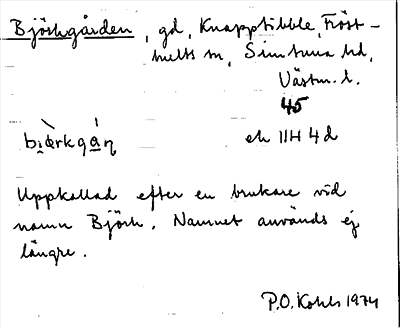 Björkgården, gd, Knapptibble, Fröst-
hults sn, Simtuna hd,
Västm. l.
45
biærkgán ek 11H 4d
Uppkallad efter en brukare vid
namn Björk. Namnet används ej
längre.
P.O. Kohls 1974